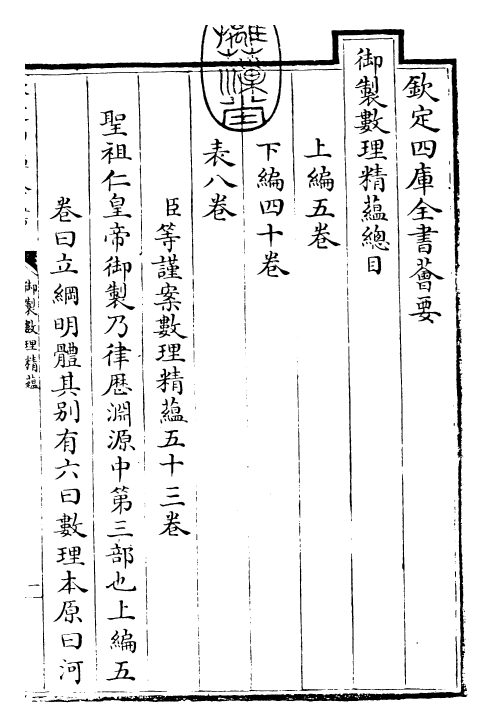 欽定四庫全書薈要
御製數理精蘊總目
上編五卷
下編四十卷
表八卷
臣等謹案數理精蘊五十三卷
聖祖仁皇帝御製乃律歷淵源中第三部也上編五
卷曰立綱明體其别有六曰數理本原曰河
御製數理精蘊
一